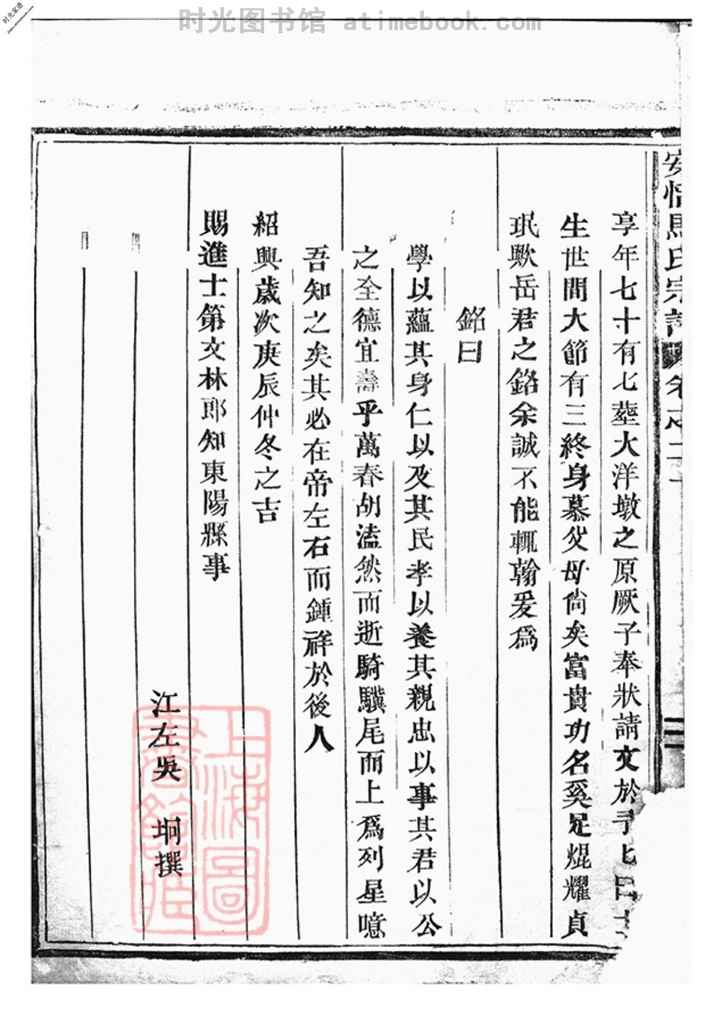 时光图书馆 atimebook.com
馬氏宗譜 卷之二十
享年七十有七葬大洋墩之原厥子奉狀請文於予
生世間大節有三終身慕父母尚矣富貴功名奚足焜耀貞
珉歟岳君之銘余誠不能輒翰爰爲
銘曰
學以蘊其身仁以及其民孝以養其親忠以事其君以公
之全德宜壽乎萬春胡溘然而逝騎驥尾而上爲列星噫
吾知之矣其必在帝左右而鍾祥於後人
紹興歲次庚辰仲冬之吉
賜進士第文林郎知東陽縣事
江左吳 坰撰
上海圖書館藏